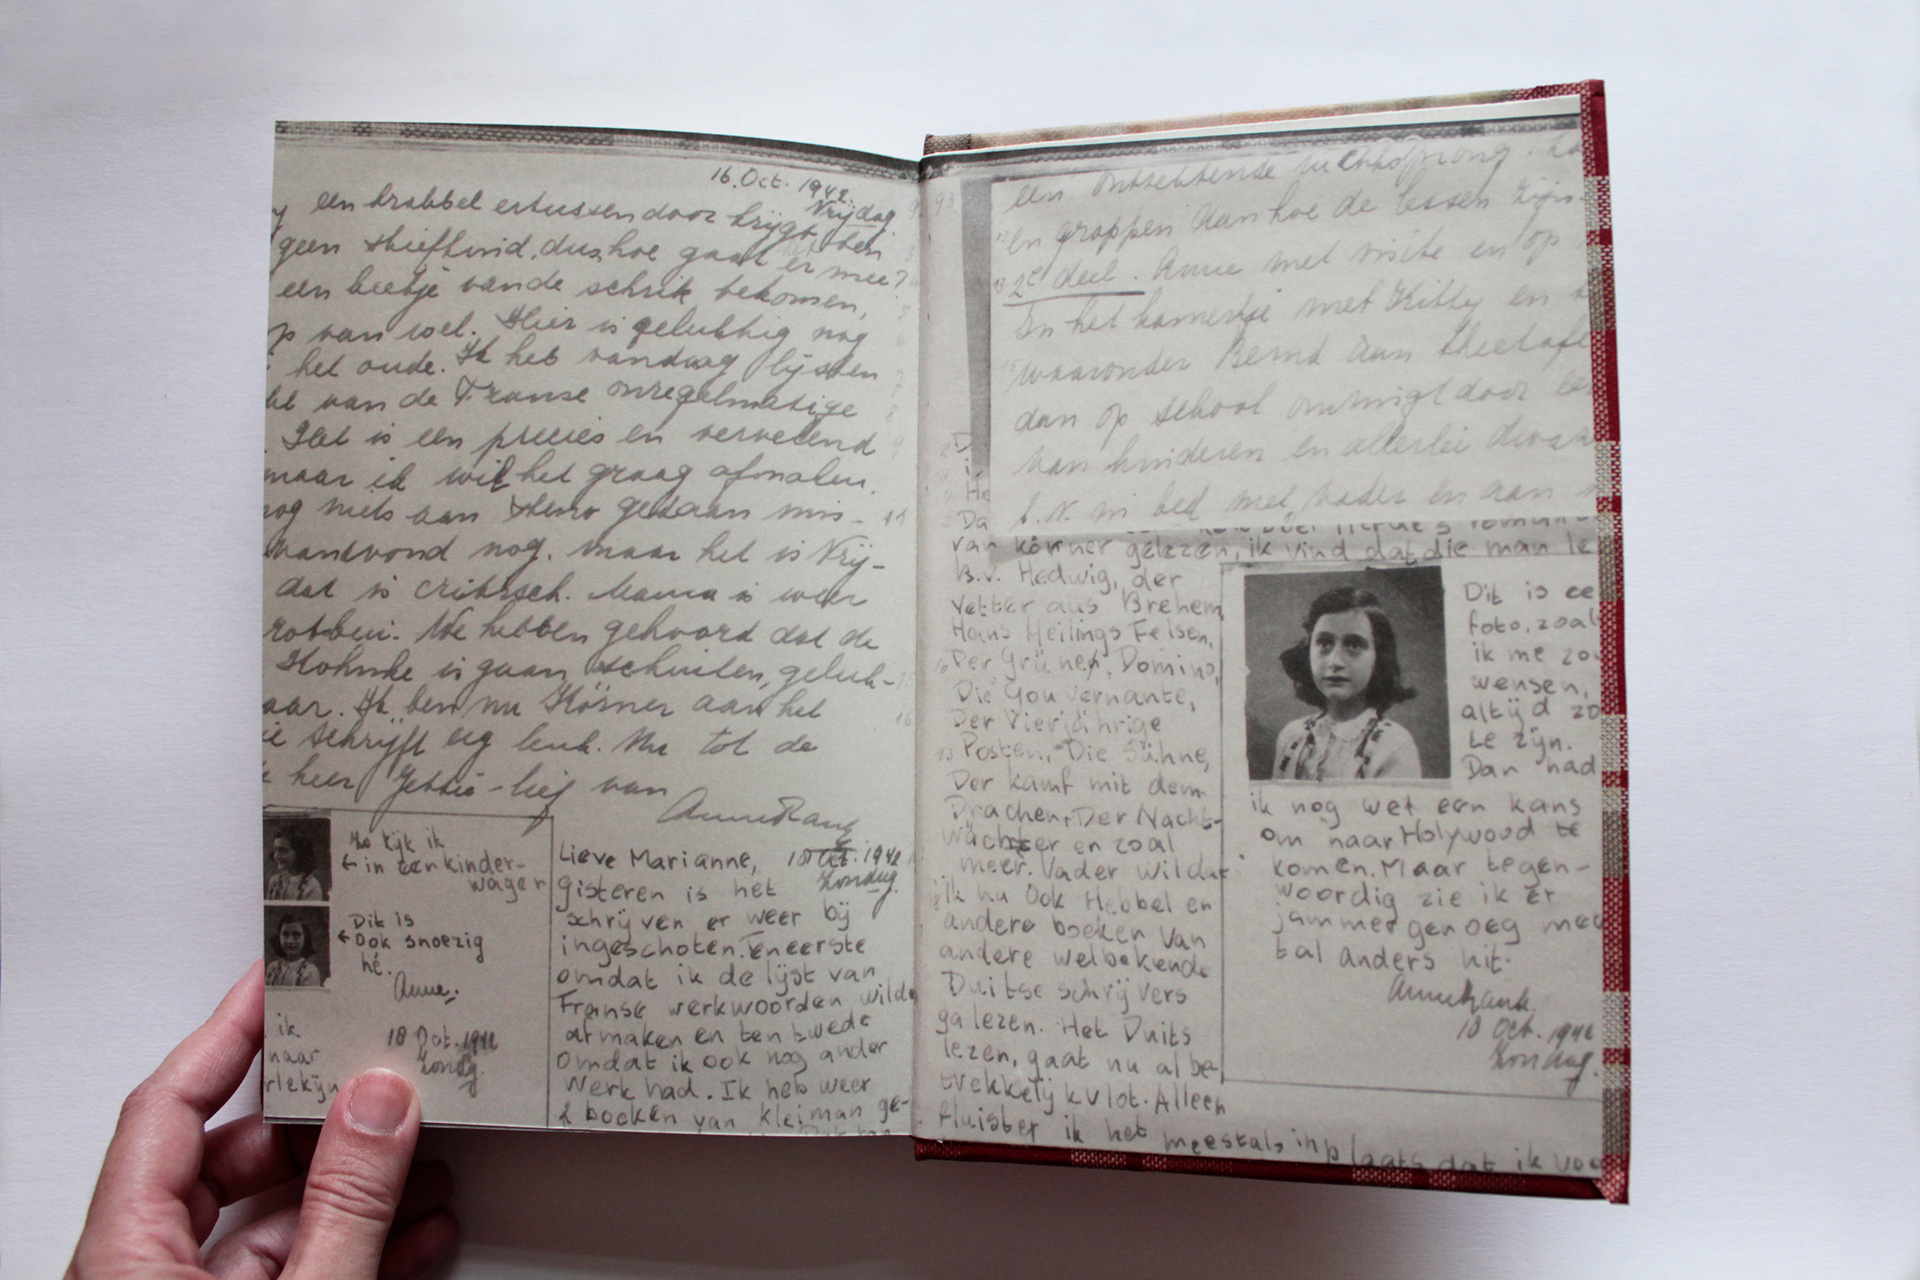 16. Oct. 1942.
Vrijdag
een krabbel ertussendoor krijgt. ben
geen stiefkind, dus hoe gaat het er mee?
een beetje van de schrik bekomen,
p van wel. Hier is gelukkig nog
het oude. Ik heb vandaag lijsten
van de Franse onregelmatige
Het is een precies en vervelend
maar ik wil het graag afmalen.
nog niets aan steno gedaan mis-
vanavond nog. maar het is Vrij-
dat is critisch. Mama is weer
We hebben gehoord dat de
is gaan schuilen, geluk-
aar. Ik ben nu Körner aan het
ie schrijft erg leuk. Nu tot de
keer Jettie-lief van
Anne Frank
Zo kijk ik
← in een kinder-
wagen
Dit is
← Ook snoezig
hé.
Anne.
18 Oct. 1942
Zondag.
ik
naar
rlekijn
Lieve Marianne, 18 Oct. 1942
Zondag.
Gisteren is het
schrijven er weer bij
ingeschoten. Ten eerste
omdat ik de lijst van
Franse werkwoorden wilde
afmaken en ten twede
omdat ik ook nog ander
werk had. Ik heb weer
2 boeken van Kleiman ge-
93
een ontzettende luchtsprong.
En grappen aan hoe de lessen zijn
2e deel. Anne met visite en op
In het kamertje met Kitty en
waaronder Bernd aan theetafl
dan op school omringt door
van kinderen en allerlei
b.v. in bed met vader en aan
D
i
He
Da
van Körner gelezen, ik vind dat die man le
B.v. Hedwig, der
Vetter aus Brehem,
Hans Heilings Felsen,
Der Grüner, Domino,
Die Gouvernante,
Der Vierjährige
Posten, Die Sühne,
Der kamf mit dem
Drachen, Der Nacht-
wächter en zoal
meer. Vader wil dat
ik nu Ook Hebbel en
andere boeken van
andere welbekende
Duitse schrijvers
ga lezen. Het Duits
lezen, gaat nu al be-
trekkelijk vlot. Alleen
fluister ik het meestal, inplaats dat ik voo
Dit is ee
foto, zoal
ik me zou
wensen,
altijd zo
te zijn.
Dan had
ik nog wel een kans
om naar Holywood te
komen. Maar tegen-
woordig zie ik er
jammer genoeg mee
tal anders uit.
Anne Frank.
18 Oct. 1942
Zondag.